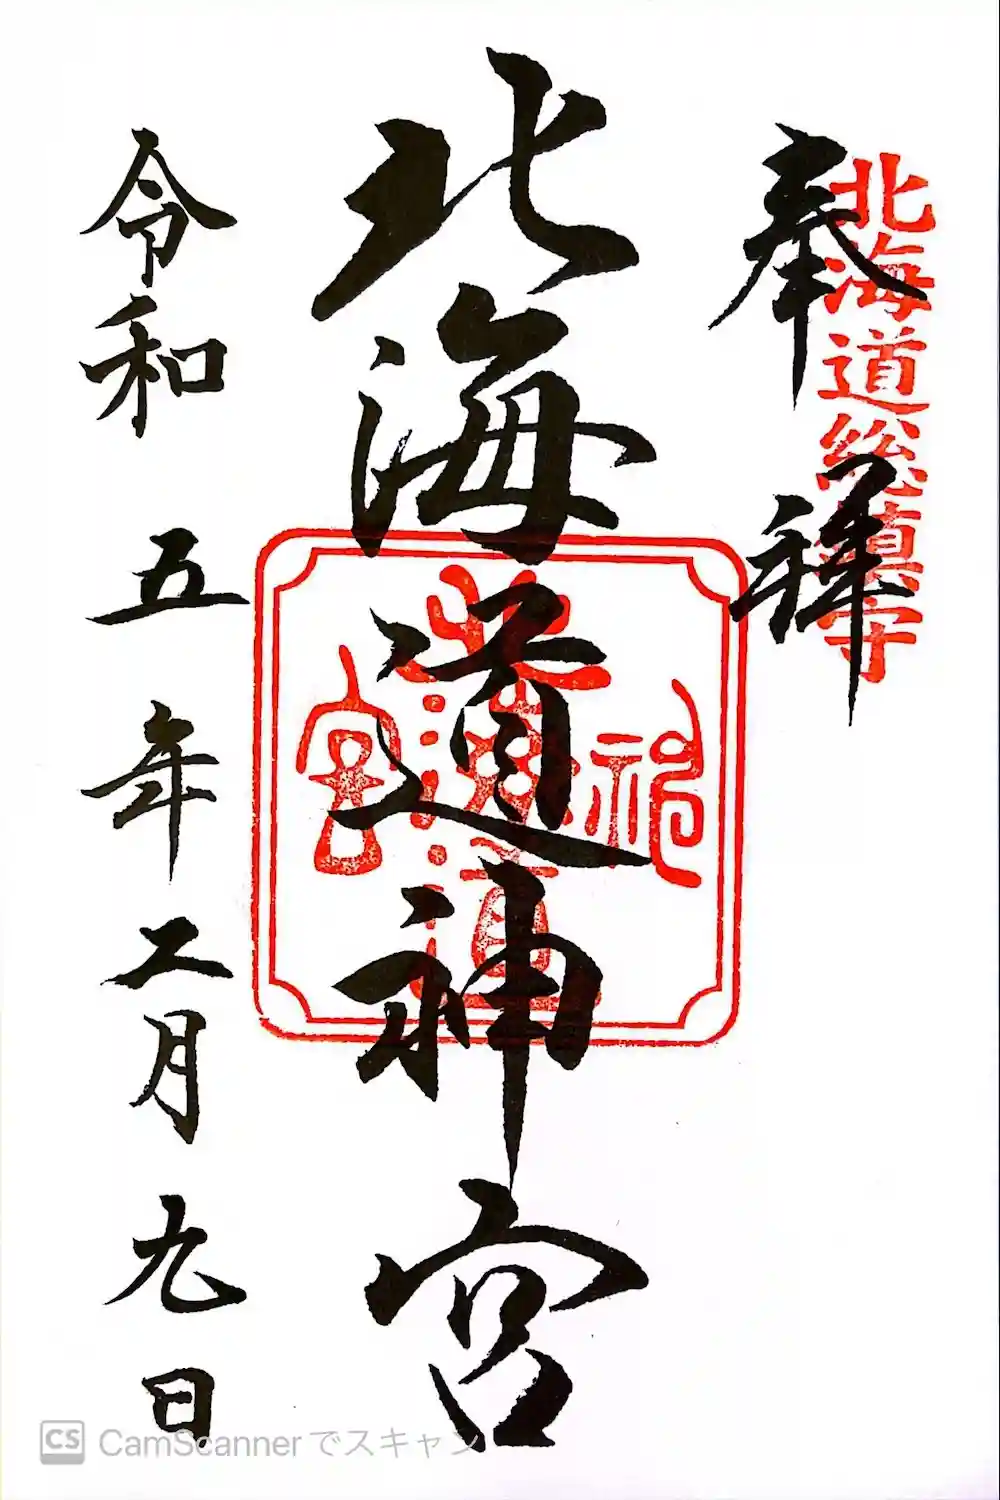 北海道総鎮守
奉拝
北海道神宮
北海道
神宮
令和五年二月九日
CS CamScannerでスキャン